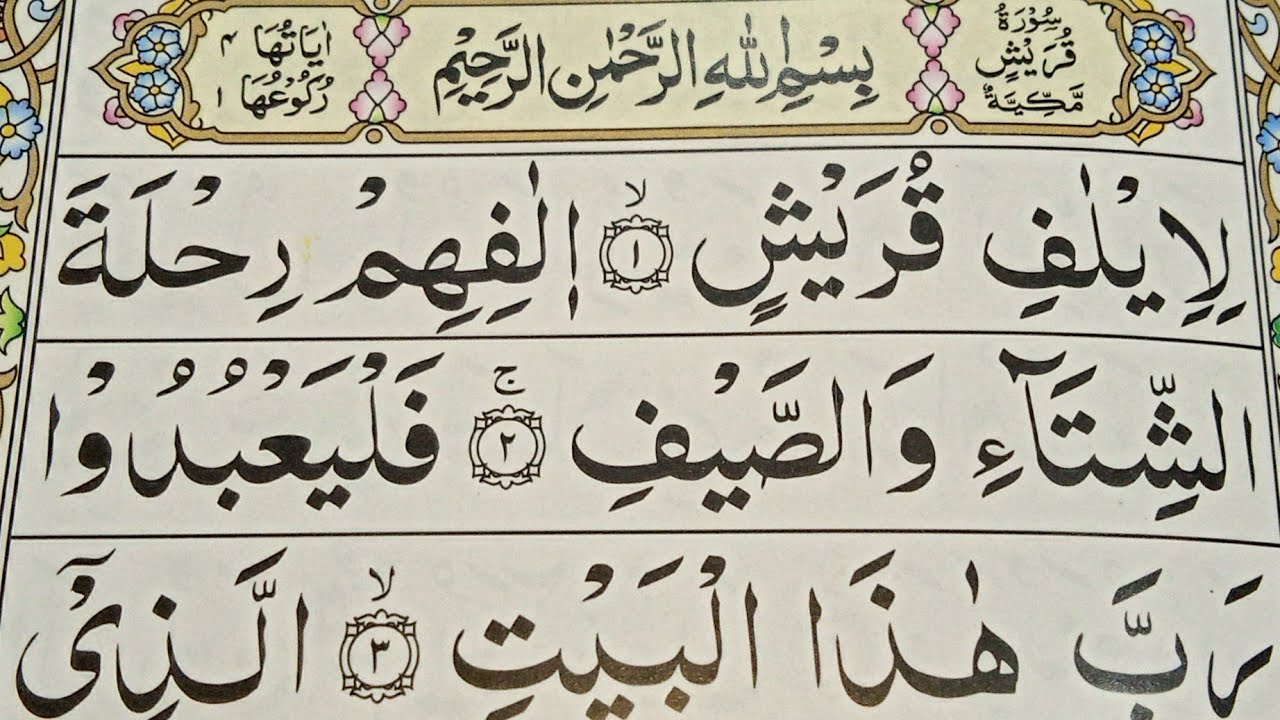 سُوْرَةُ
قُرَيْشٍ
مَّكِّيَّةٌ
بِسْمِ اللّٰهِ الرَّحْمٰنِ الرَّحِيْمِ
اٰيَاتُهَا ٤
رُكُوْعُهَا ١
لِاِيْلٰفِ قُرَيْشٍ ۙ ١ اٖلٰفِهِمْ رِحْلَةَ
الشِّتَآءِ وَالصَّيْفِ ۚ ٢ فَلْيَعْبُدُوْا
رَبَّ هٰذَا الْبَيْتِ ۙ ٣ الَّذِيْۤ